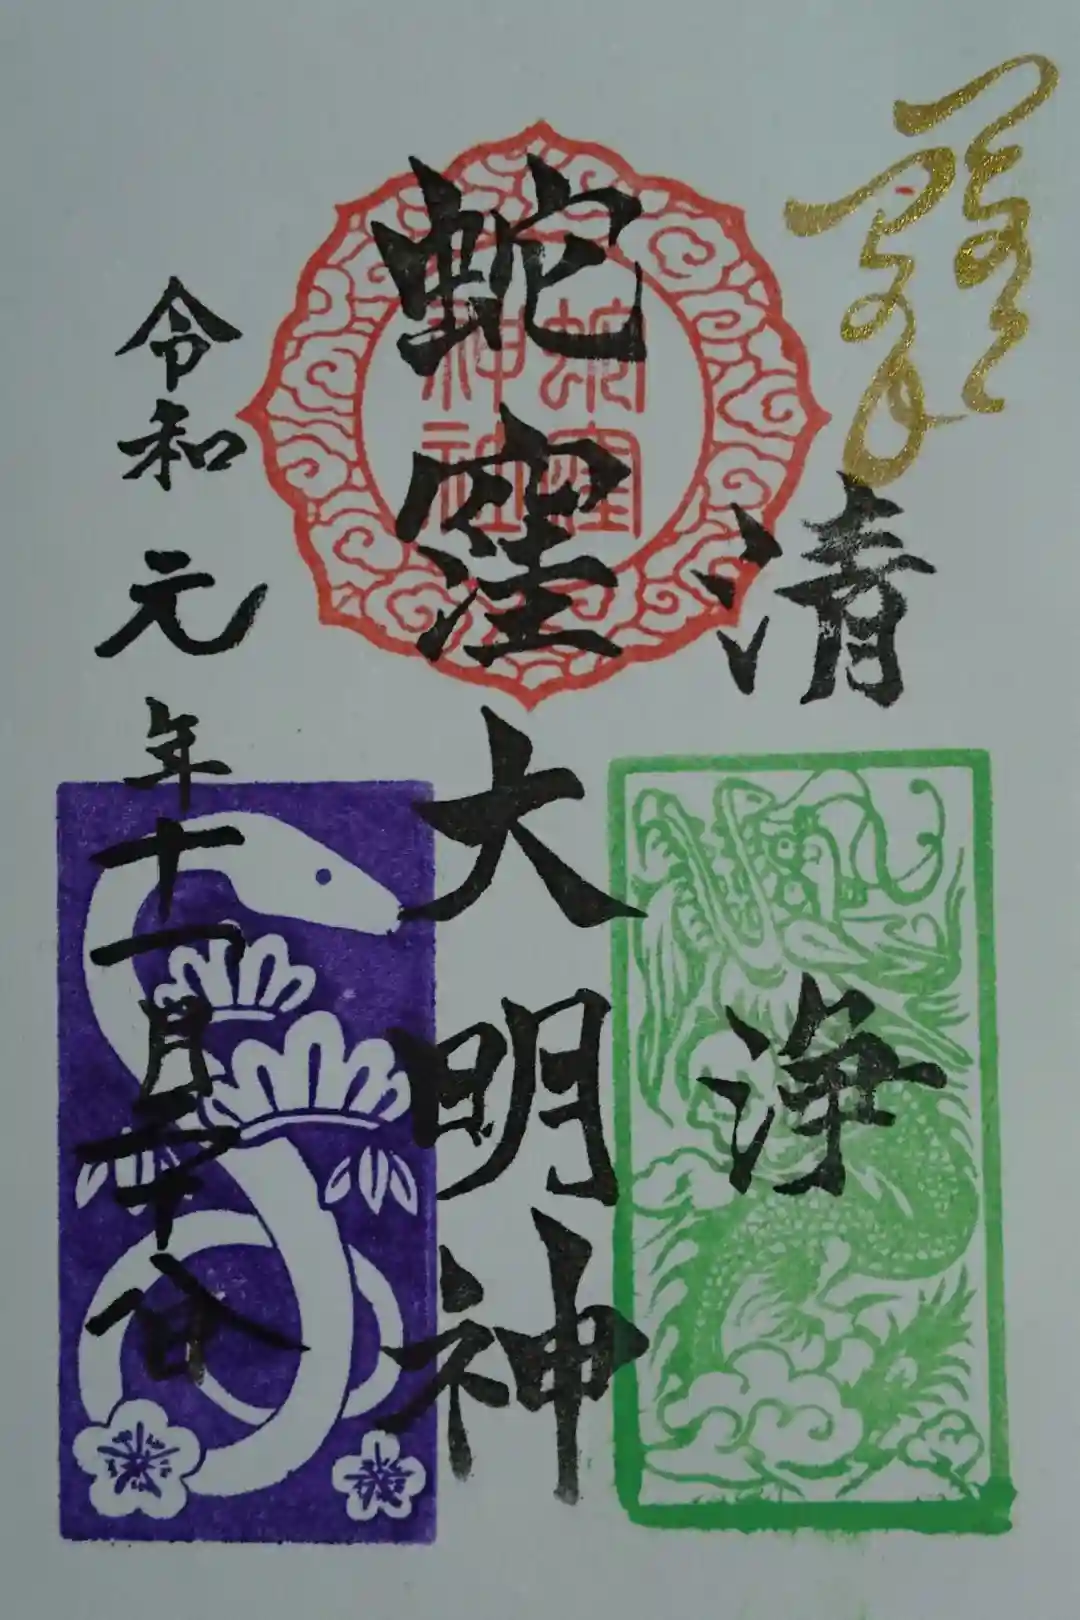 清浄
蛇窪大明神
蛇窪
神社
令和元年十一月二十八日